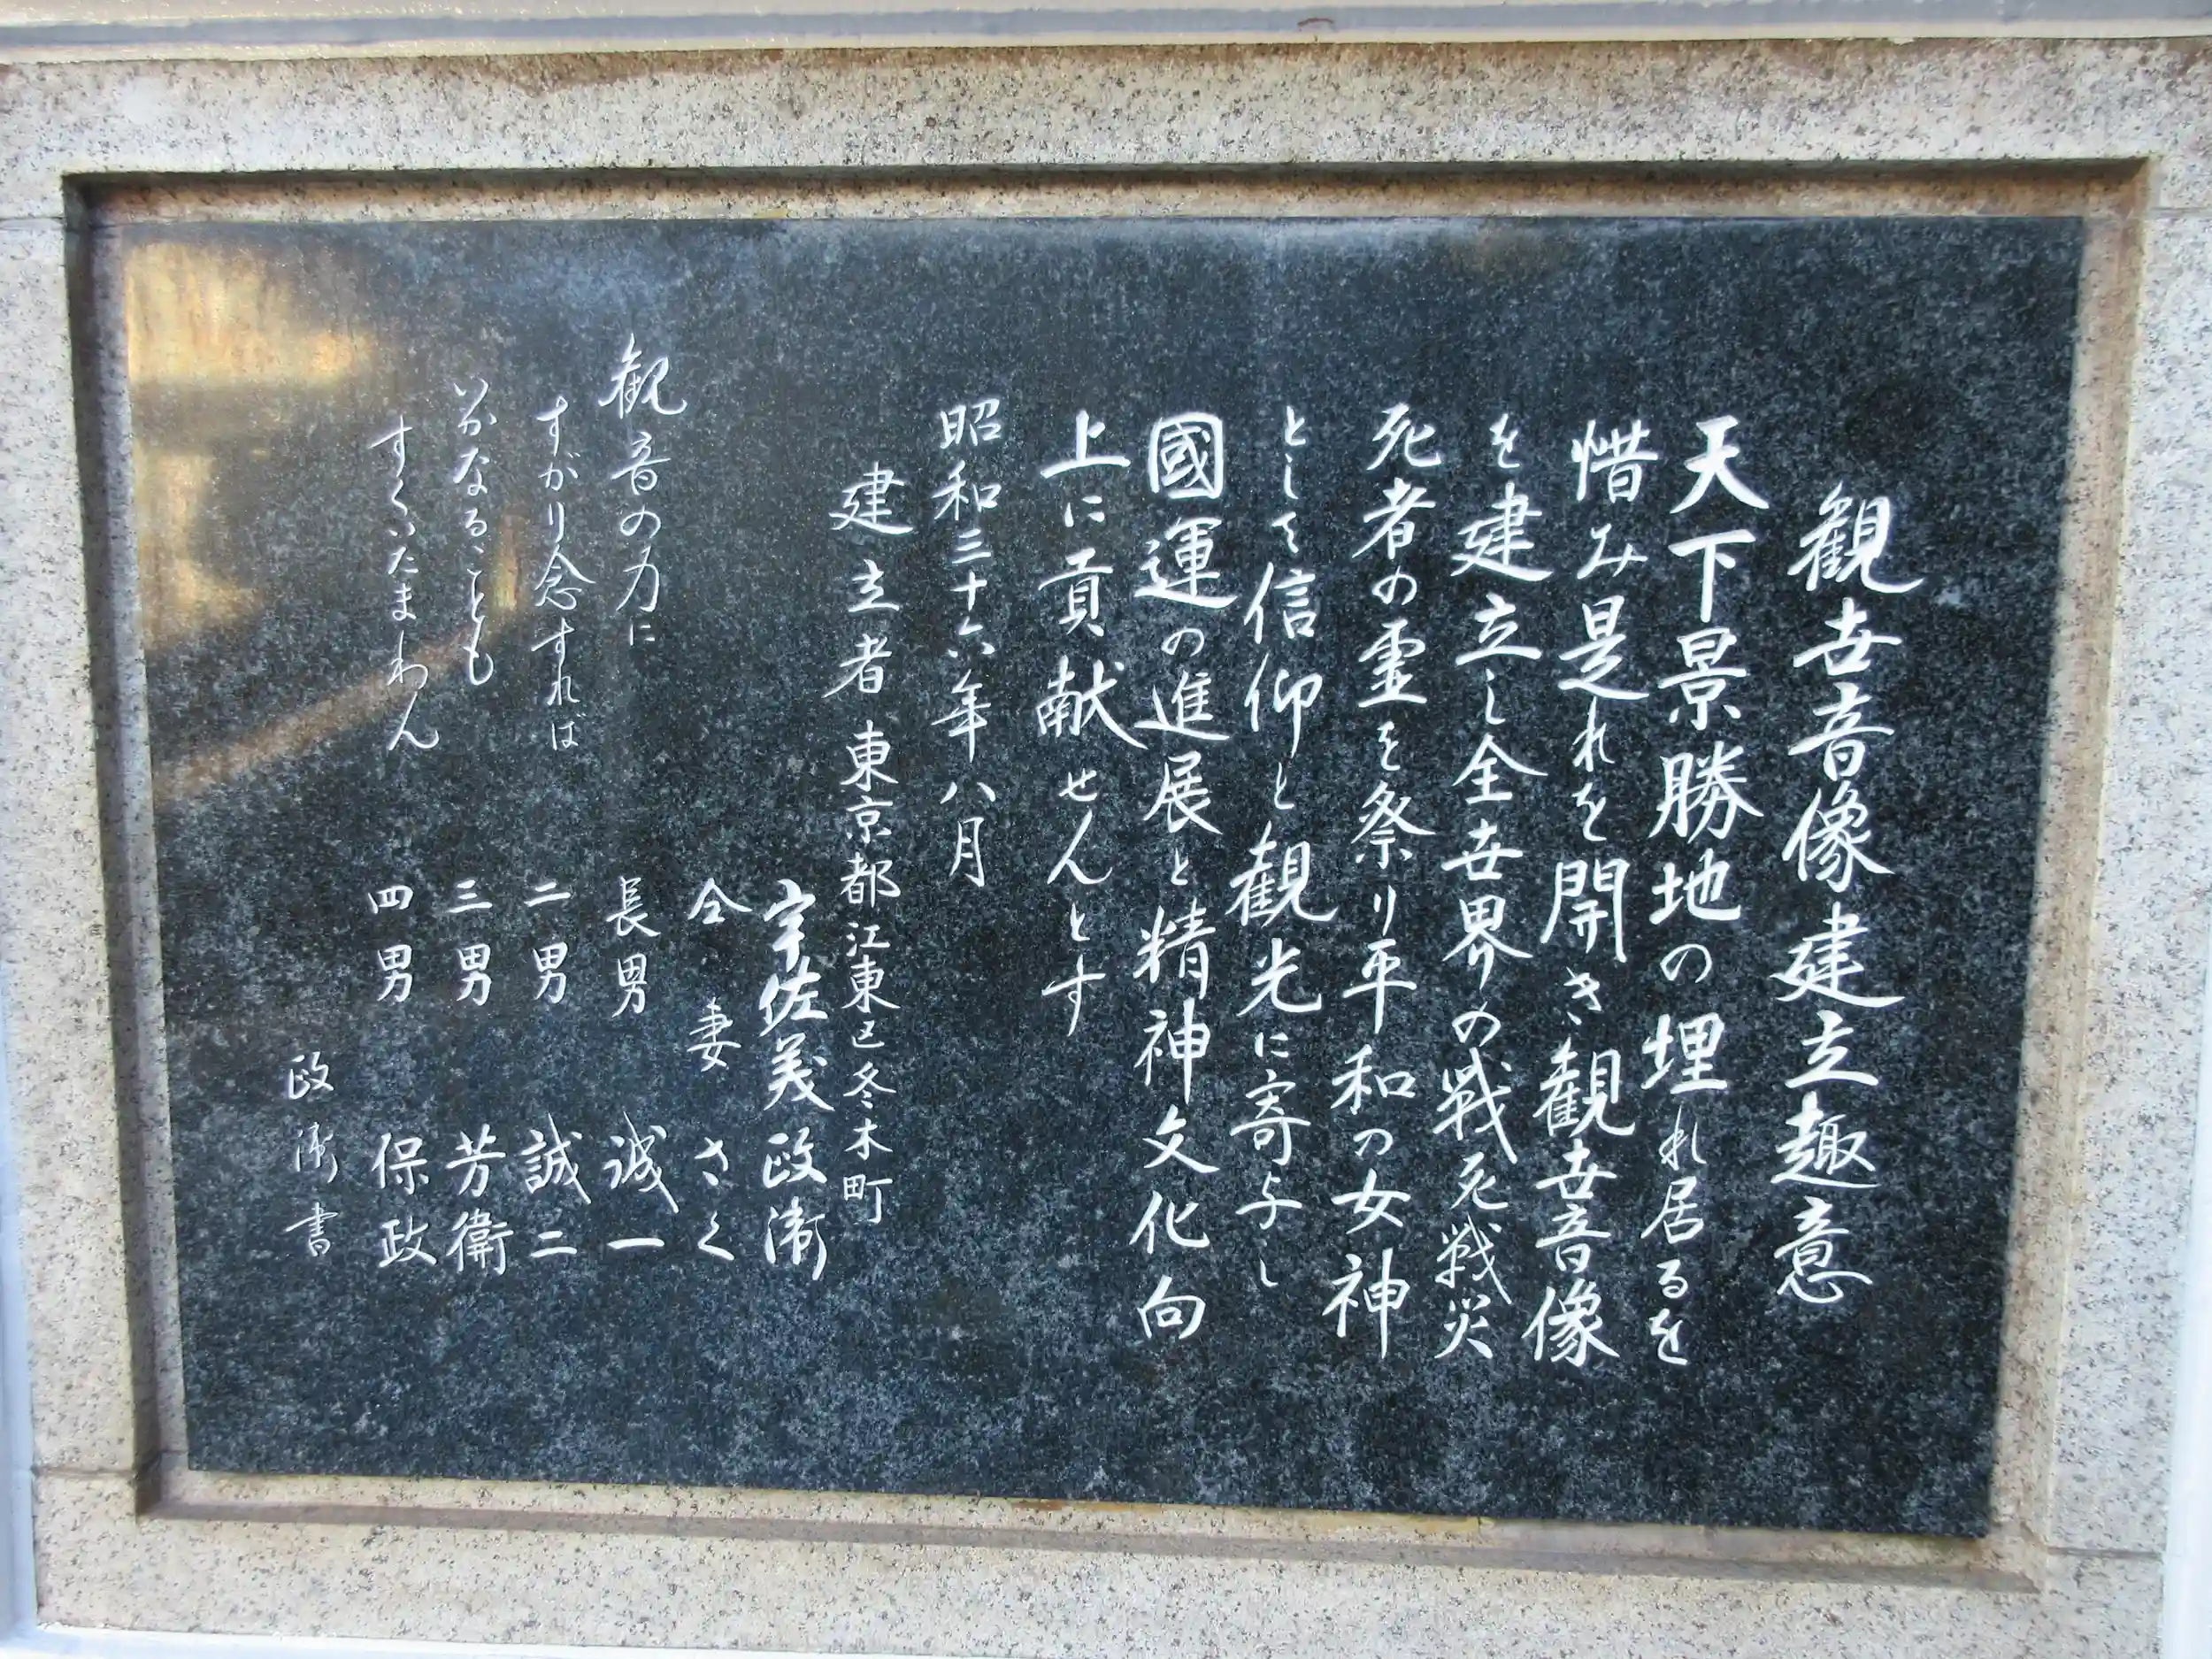 観世音像建立趣意
天下景勝地の埋れ居るを
惜み是れを開き観世音像
を建立し全世界の戦死戦災
死者の霊を祭り平和の女神
として信仰と観光に寄与し
國運の進展と精神文化向
上に貢献せんとす
昭和三十六年八月
建立者 東京都江東区冬木町
宇佐美政衛
仝 妻 さく
長男 誠一
二男 誠二
三男 芳衛
四男 保政
観音の力に
すがり念ずれば
いかなることも
すくいたまわん
政衛書